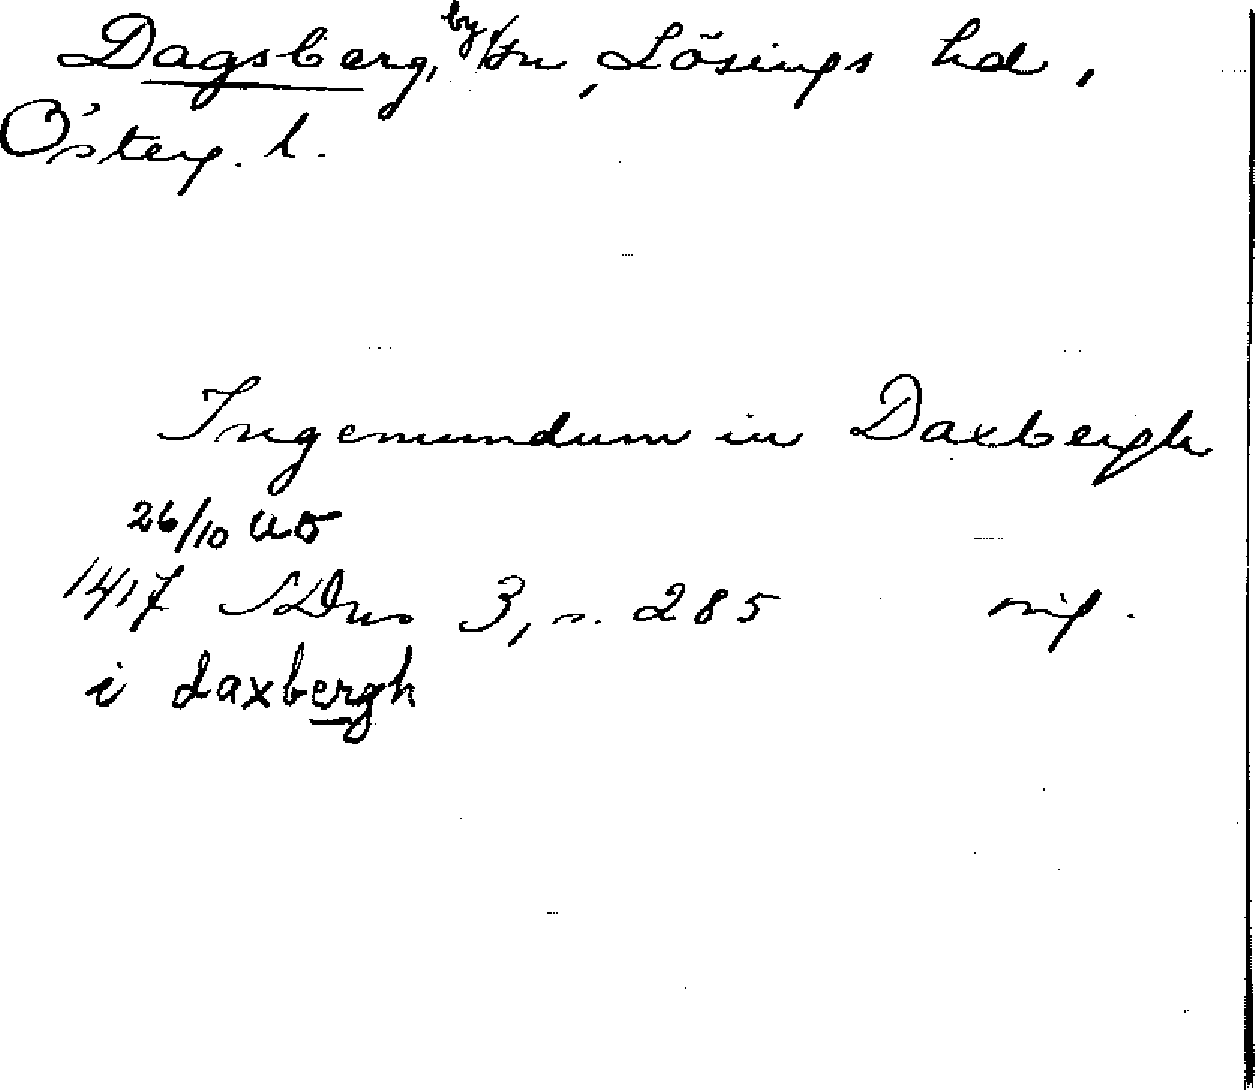 Dagsberg, by/sn, Lösings hd,
Österg. l.
Ingemundum in Daxbergh
26/10 uo
1417 SDns 3, s. 285 orig.
i daxbergh